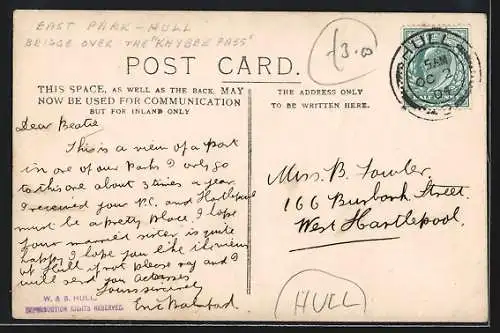 EAST PARK - HULL
BRIDGE OVER THE "KHYBER PASS"
£3.00
HULL
5 AM
OC 2
04
POST CARD.
THIS SPACE, AS WELL AS THE BACK, MAY
NOW BE USED FOR COMMUNICATION
BUT FOR INLAND ONLY
THE ADDRESS ONLY
TO BE WRITTEN HERE.
Dear Beatie
This is a view of a part
in one of our Parks I only go
to this one about 3 times a year
I received your P.C. and Hartlepool
must be a pretty place. I hope
your married sister is quite
happy I hope you like the views
of Hull if not please say and I
will send you Actresses
Yours sincerely
Eric
Miss. B. Fowler.
166 Burbank Street.
West Hartlepool.
W. & S. HULL.
REPRODUCTION RIGHTS RESERVED.
HULL